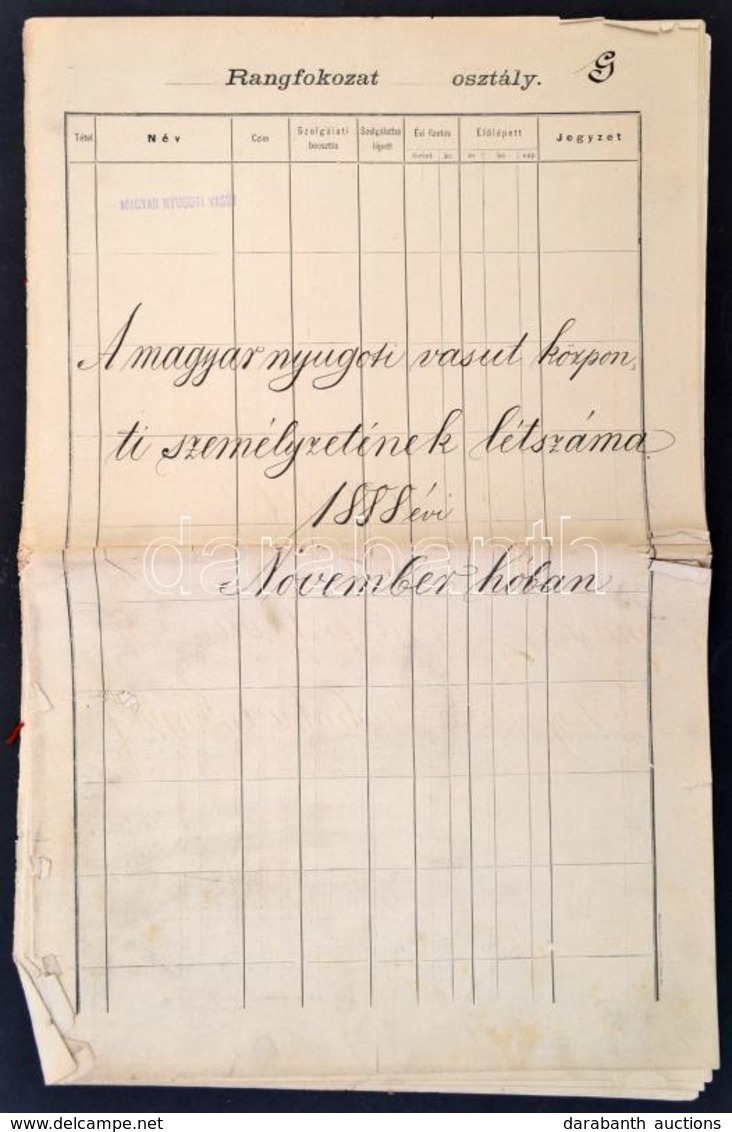 Rangfokozat osztály. G
Tétel Név Czím Szolgálati beosztás Szolgálatba lépett Évi fizetés Előlépett Jegyzet
forint kr. év hó nap
MAGYAR NYUGOTI VASÚT
A magyar nyugoti vasut közpon,
ti személyzetének létszáma
1888 évi
November hóban
darabanth
darabanth auctions